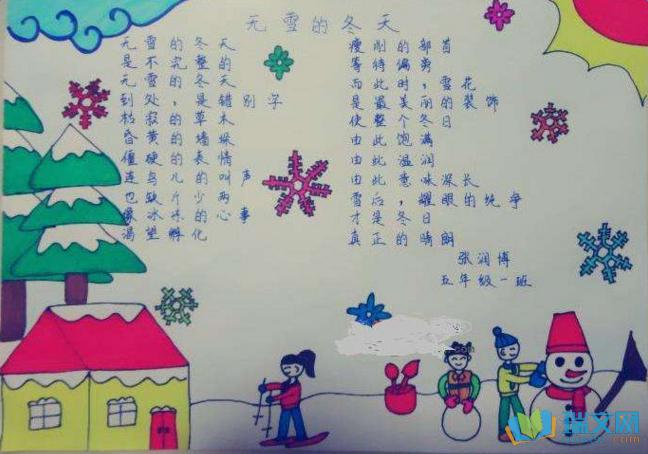 无雪的冬天
无雪的冬天
是不完整的
无雪的冬天
到处，是错别字
枯寂的草木
昏黄的墙垛
僵硬的表情
连鸟儿的叫声
也缺斤少两
像冰冻的心事
渴望孵化
瘦削的部首
等待偏旁
而此时，雪花
是最美丽的装饰
使整个冬日
由此饱满
由此温润
由此意味深长
雪后，耀眼的纯净
才是冬日
真正的晴朗
张润博
五年级一班
瑞文网